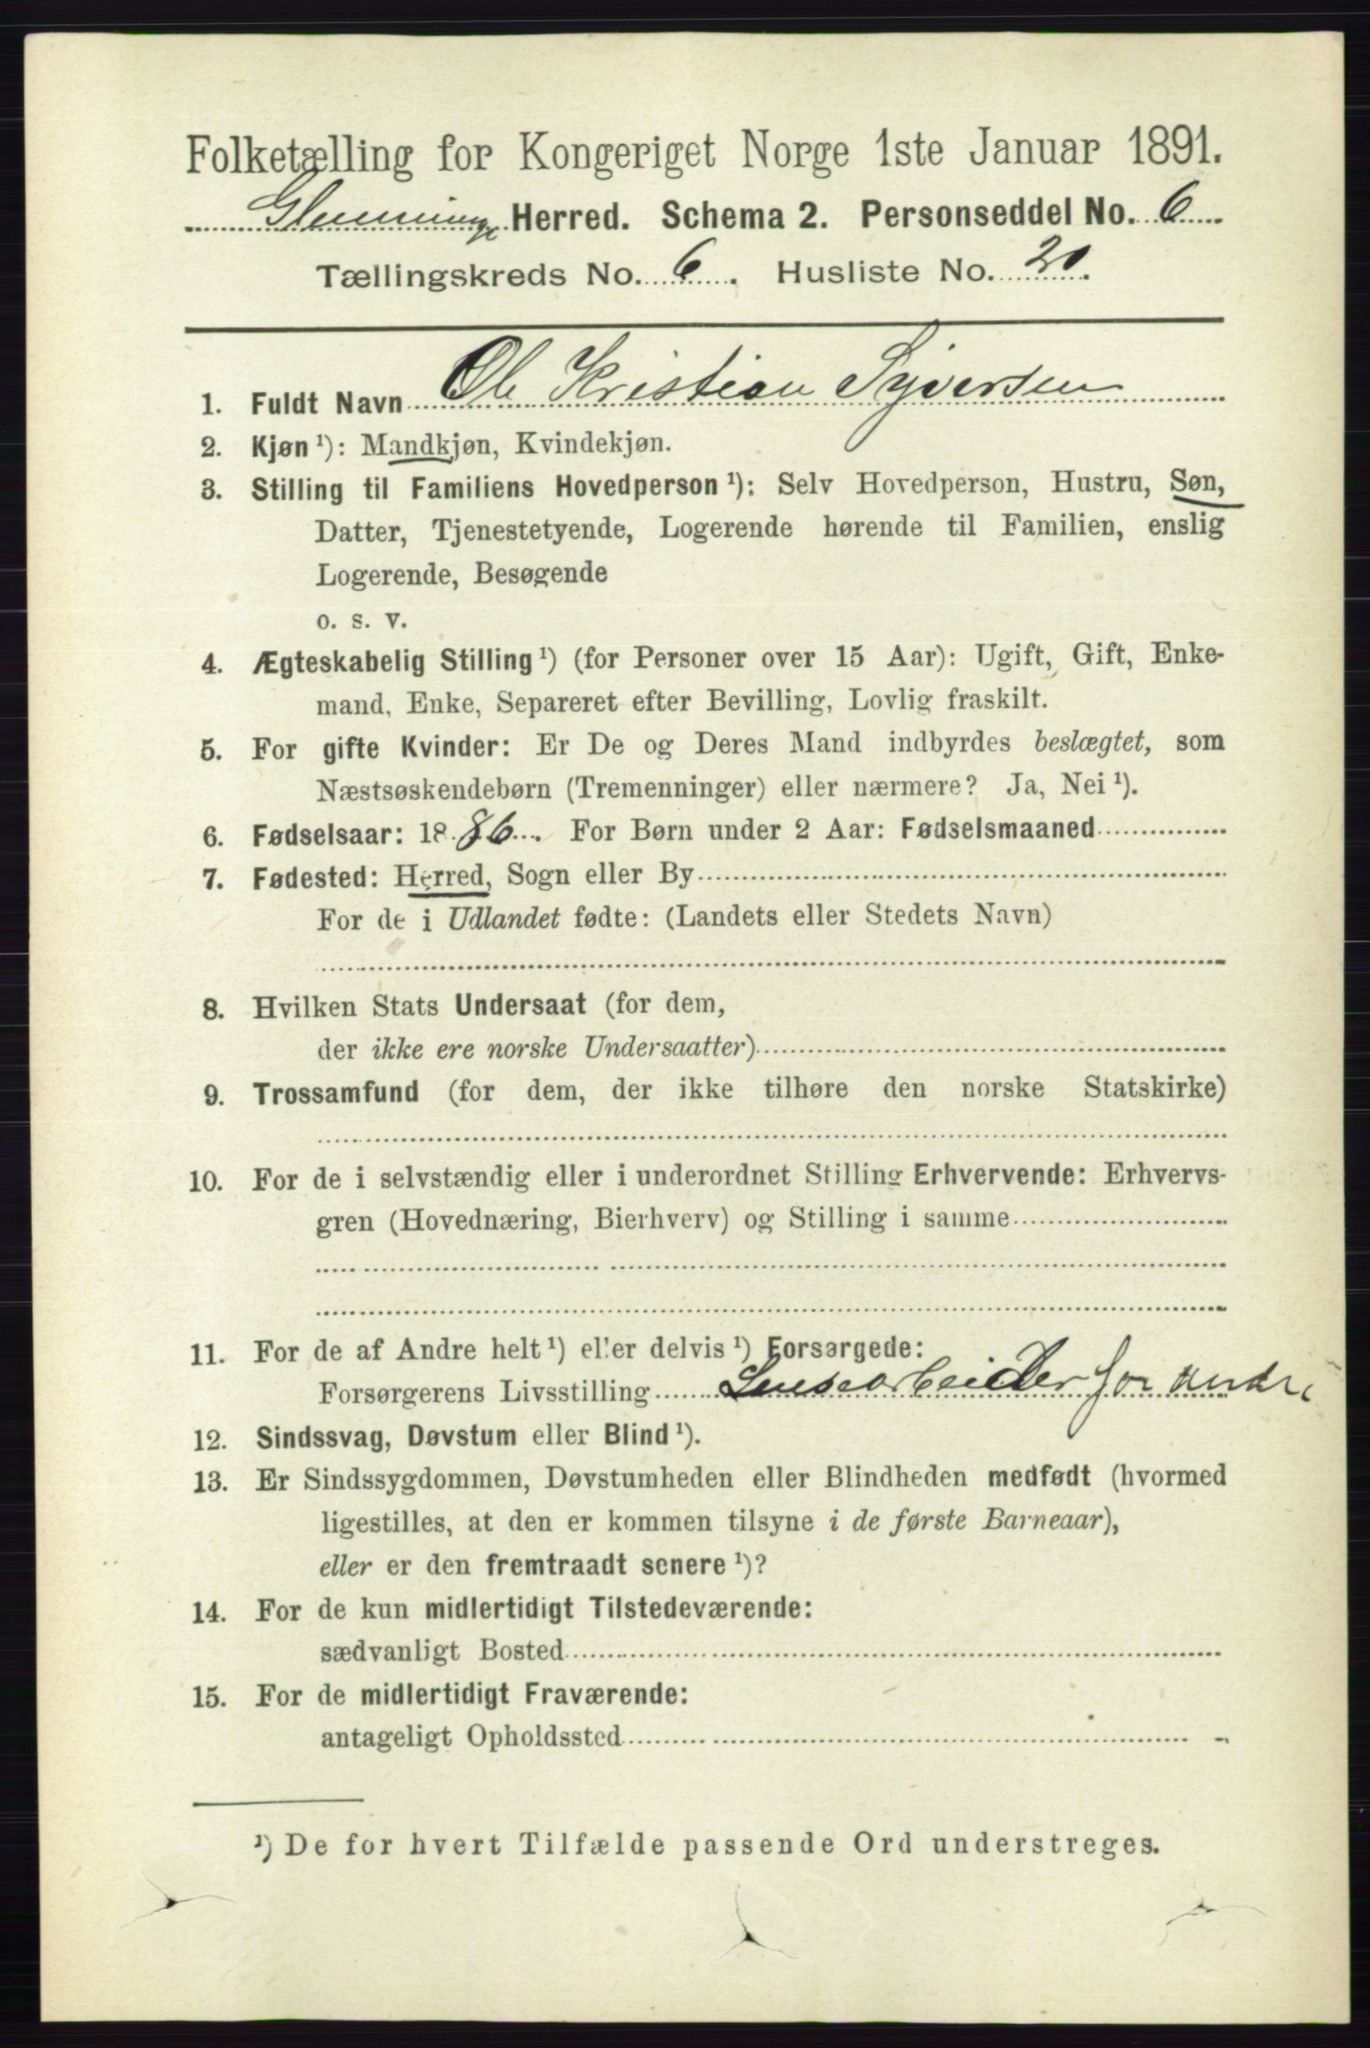 Folketælling for Kongeriget Norge 1ste Januar 1891.
Glemminge Herred. Schema 2. Personseddel No. 6.
Tællingskreds No. 6. Husliste No. 20.
1. Fuldt Navn Ole Kristian Syversen
2. Kjøn ¹): Mandkjøn, Kvindekjøn.
3. Stilling til Familiens Hovedperson ¹): Selv Hovedperson, Hustru, Søn,
Datter, Tjenestetyende, Logerende hørende til Familien, enslig
Logerende, Besøgende
o. s. v.
4. Ægteskabelig Stilling ¹) (for Personer over 15 Aar): Ugift, Gift, Enke-
mand, Enke, Separeret efter Bevilling, Lovlig fraskilt.
5. For gifte Kvinder: Er De og Deres Mand indbyrdes beslægtet, som
Næstsøskendebørn (Tremenninger) eller nærmere? Ja, Nei ¹).
6. Fødselsaar: 1886. For Børn under 2 Aar: Fødselsmaaned
7. Fødested: Herred, Sogn eller By
For de i Udlandet fødte: (Landets eller Stedets Navn)
8. Hvilken Stats Undersaat (for dem,
der ikke ere norske Undersaatter)
9. Trossamfund (for dem, der ikke tilhøre den norske Statskirke)
10. For de i selvstændig eller i underordnet Stilling Erhvervende: Erhvervs-
gren (Hovednæring, Bierhverv) og Stilling i samme
11. For de af Andre helt ¹) eller delvis ¹) Forsørgede:
Forsørgerens Livsstilling Lensearbeider for andre
12. Sindssvag, Døvstum eller Blind ¹).
13. Er Sindssygdommen, Døvstumheden eller Blindheden medfødt (hvormed
ligestilles, at den er kommen tilsyne i de første Barneaar),
eller er den fremtraadt senere ¹)?
14. For de kun midlertidigt Tilstedeværende:
sædvanligt Bosted
15. For de midlertidigt Fraværende:
antageligt Opholdssted
¹) De for hvert Tilfælde passende Ord understreges.